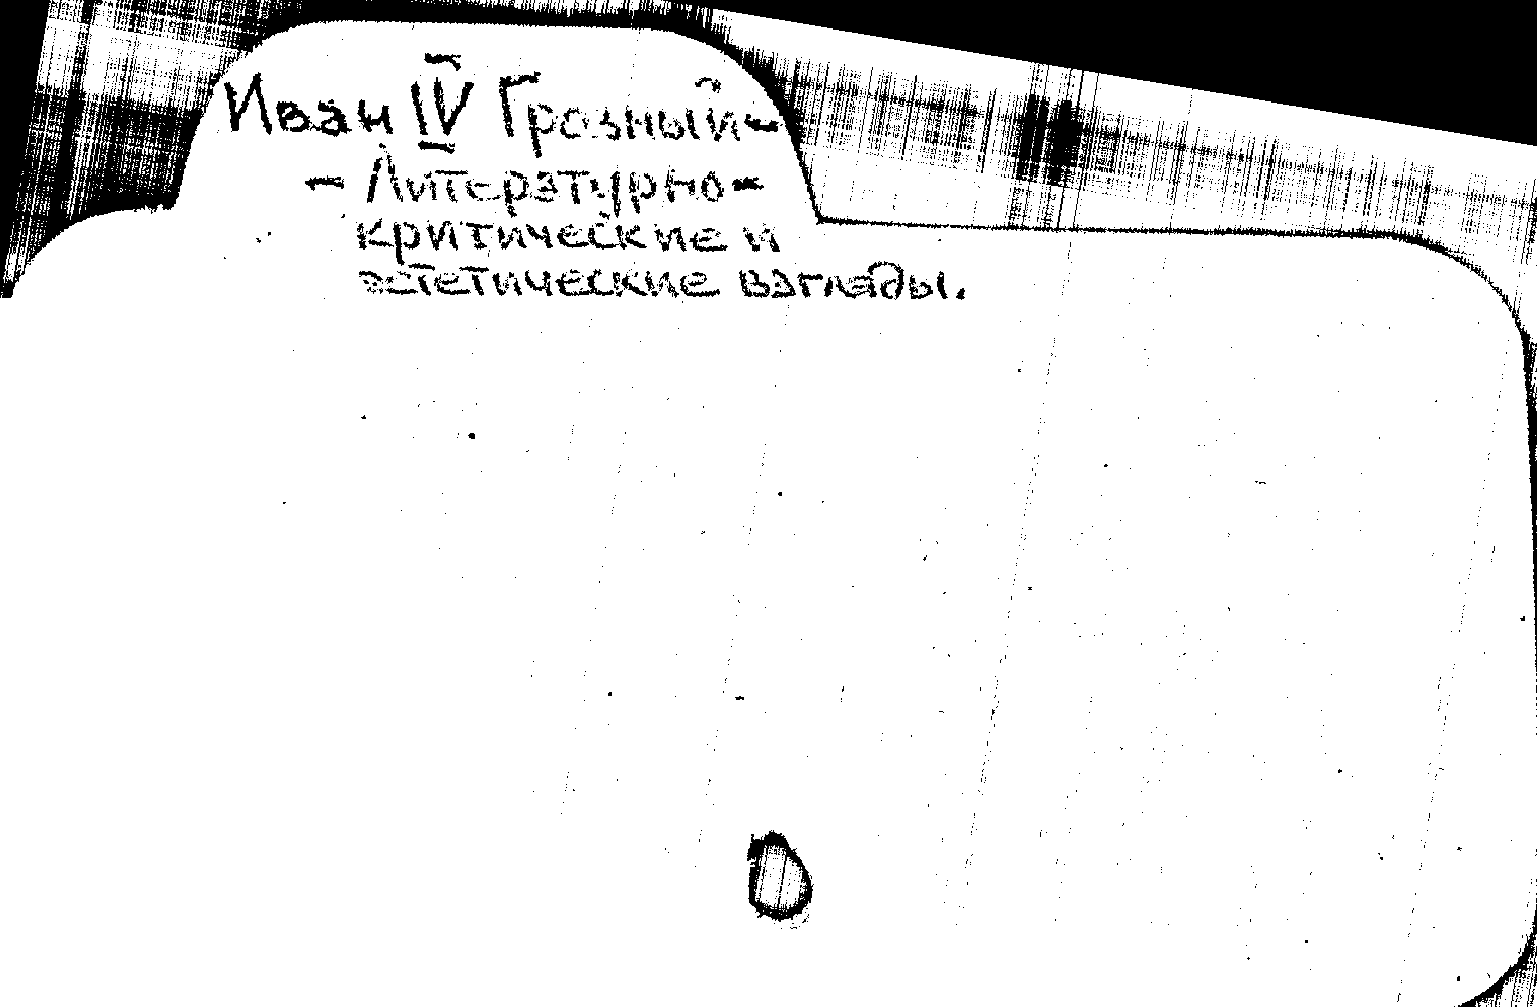 Иван IV Грозный-
- Литературно-
критические и
эстетические взгляды.